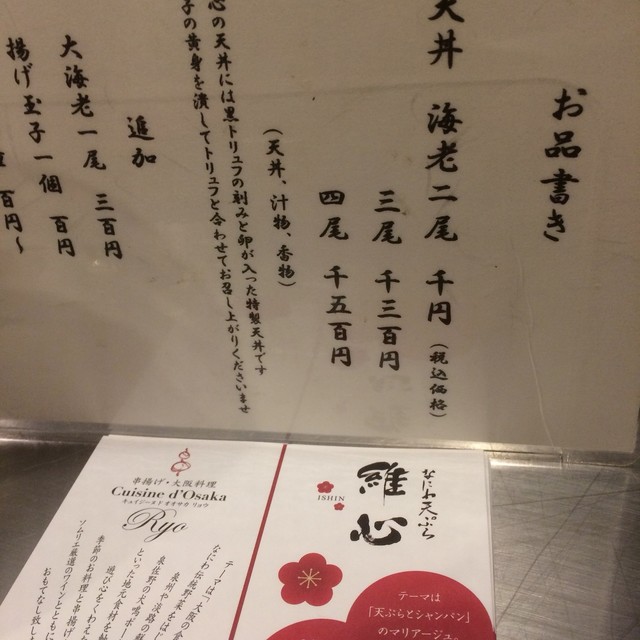 お品書き
天丼 海老二尾 千円（税込価格）
三尾 千三百円
四尾 千五百円
（天丼、汁物、香物）
心の天丼には黒トリュフの刻みと卵が入った特製天丼です
子の黄身を潰してトリュフと合わせてお召し上がりくださいませ
追加
大海老一尾 三百円
揚げ玉子一個 百円
百円〜
なにわ天ぷら
維心
ISHIN
テーマは
「天ぷらとシャンパン」
のマリアージュ
串揚げ・大阪料理
Cuisine d'Osaka
キュイジーヌ ド オオサカ リョウ
Ryo
テーマは「大阪の食
なにわ伝統野菜をは
泉州や淡路の
泉佐野の犬鳴ポー
といった地元食材を
遊び心をくわえ
季節のお料理と串揚げ
ソムリエ厳選のワインとともに
おもてなし致し